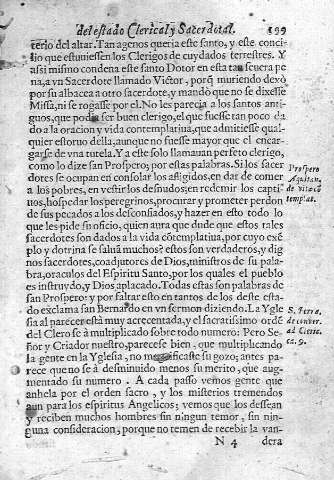 del estado Clerical, y Sacerdotal. 199
terio del altar. Tan agenos queria este santo, y este conci-
lio que estuuiessen los Clerigos de cuydados terrestres. Y
assi mismo condena este santo Dotor en esta tan seuera pe
na, a vn Sacerdote llamado Victor, porq̃ muriendo dexò
por su albacea a otro sacerdote, y mandò que no se dixesse
Missa, ni se rogasse por el. No les parecia a los santos anti-
guos, que podia ser buen clerigo, el que fuesse tan poco da
do a la oracion y vida contemplatiua, que admitiesse qual-
quier estoruo della, aunque no fuesse mayor que el encar-
garse de vna tutela. Y a este solo llamauan perfeto clerigo,
como lo dize san Prospero, por estas palabras. Si los sacer
dotes se ocupan en consolar los afligidos, en dar de comer
a los pobres, en vestir los desnudos, en redemir los capti-
uos, hospedar los peregrinos, procurar y prometer perdon
de sus pecados a los desconfiados, y hazer en esto todo lo
que les pide su oficio, quien aura que dude que estos tales
sacerdotes son dados a la vida cõtemplatiua, por cuyo exẽ
plo y dotrina se saluã muchos? estos son verdaderos, y dig
nos sacerdotes, coadjutores de Dios, ministros de su pala-
bra, oraculos del Espiritu Santo, por los quales el pueblo
es instruydo, y Dios aplacado. Todas estas son palabras de
san Prospero: y por faltar esto en tantos de los deste esta-
do exclama san Bernardo en vn sermon diziendo. La Ygle
sia al parecer està muy acrecentada, y el sacratissimo ordẽ
del Clero se à multiplicado sobre todo numero: Pero Se-
ñor y Criador nuestro, parecese bien, que multiplicando
la gente en la Yglesia, no magnificaste su gozo; antes pa-
rece que no se à desminuido menos su merito, que aug-
mentado su numero. A cada passo vemos gente que
anhela por el orden sacro, y los misterios tremendos
aun para los espiritus Angelicos; vemos que los dessean
y reciben muchos hombres sin ningun temor, sin nin-
guna consideracion, porque no temen de recebir la van-
N 4 dera
Prospero
Aquitan.
de vita cõ
templat.
S. Berna.
de conuer.
ad Cleric.
ca. 9.